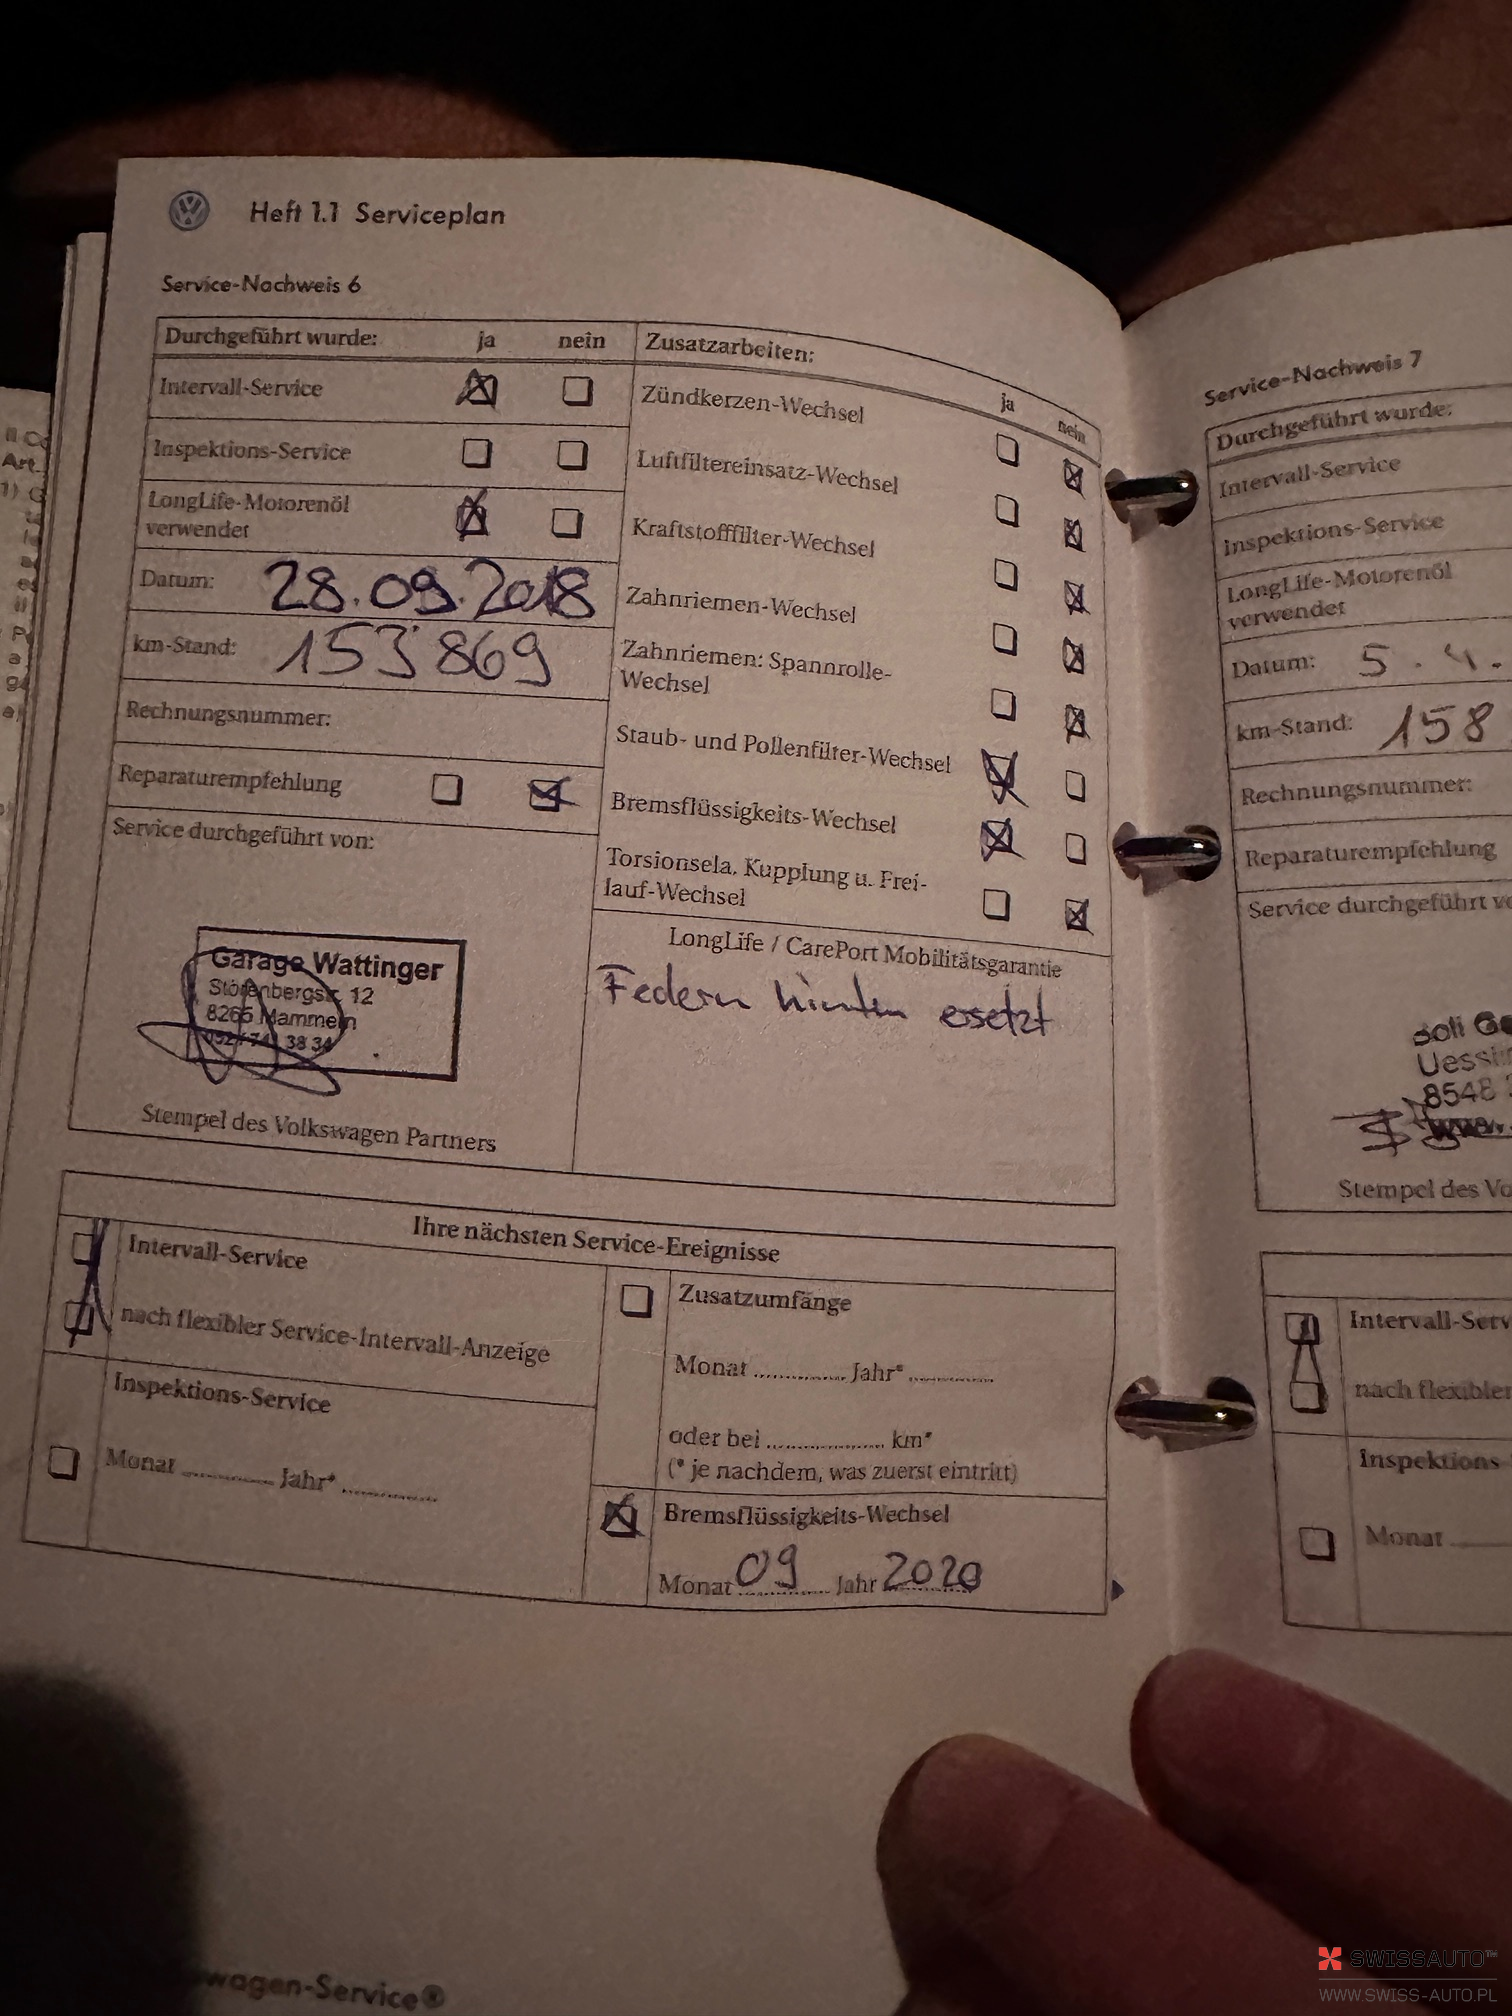 Heft 1.1 Serviceplan
Service-Nachweis 6
Durchgeführt wurde: ja nein
Intervall-Service
Inspektions-Service
LongLife-Motorenöl
verwendet
Datum: 28.09.2018
km-Stand: 153'869
Rechnungsnummer:
Reparaturempfehlung
Service durchgeführt von:
Garage Wattinger
Störenbergstr. 12
8265 Mammern
38 34
Stempel des Volkswagen Partners
Zusatzarbeiten:
ja nein
Zündkerzen-Wechsel
Luftfiltereinsatz-Wechsel
Kraftstofffilter-Wechsel
Zahnriemen-Wechsel
Zahnriemen: Spannrolle-
Wechsel
Staub- und Pollenfilter-Wechsel
Bremsflüssigkeits-Wechsel
Torsionsela. Kupplung u. Frei-
lauf-Wechsel
LongLife / CarePort Mobilitätsgarantie
Federn hinten ersetzt
Ihre nächsten Service-Ereignisse
Intervall-Service
nach flexibler Service-Intervall-Anzeige
Inspektions-Service
Monat ............ Jahr* ............
Zusatzumfänge
Monat ............ Jahr* ............
oder bei ............ km*
(* je nachdem, was zuerst eintritt)
Bremsflüssigkeits-Wechsel
Monat 09 Jahr 2020
wagen-Service®
Service-Nachweis 7
Durchgeführt wurde:
Intervall-Service
Inspektions-Service
LongLife-Motorenöl
verwendet
Datum: 5.4.
km-Stand: 158
Rechnungsnummer:
Reparaturempfehlung
Service durchgeführt vo
8548
Stempel des Vo
Intervall-Serv
nach flexibler
Inspektions-
Monat
SWISSAUTO™
WWW.SWISS-AUTO.PL